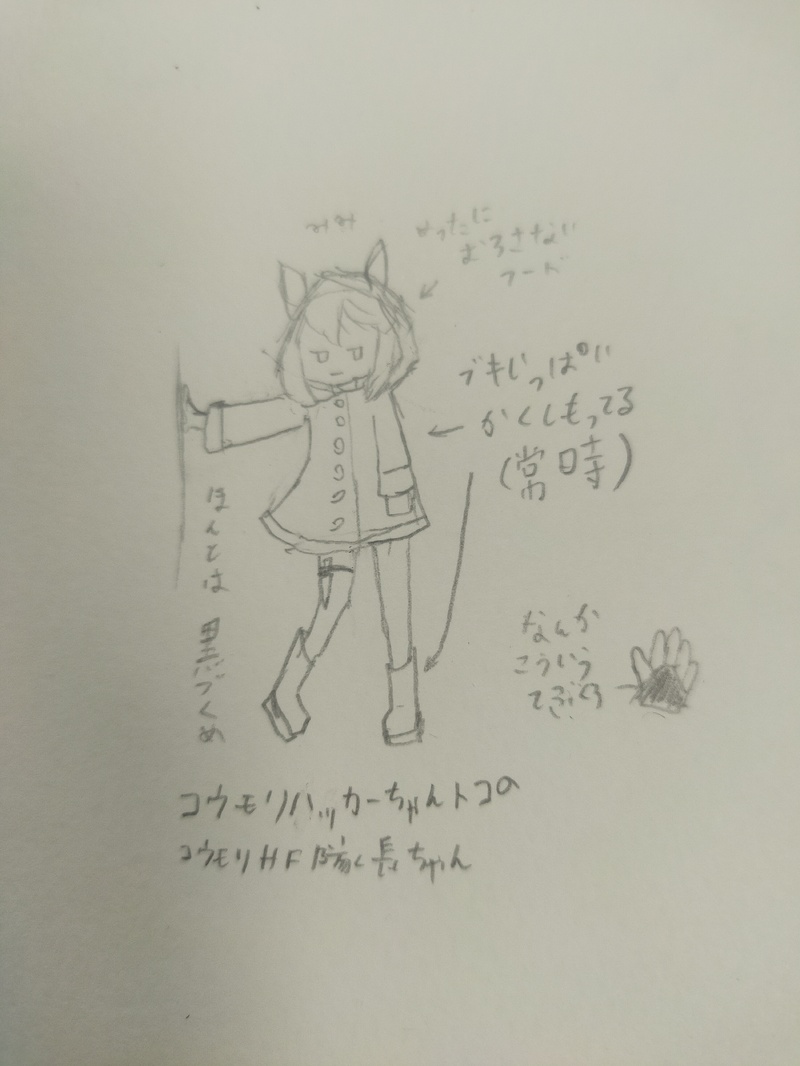 みみ
めったに
おろさない
フード
ブキいっぱい
かくしもってる
(常時)
ほんとは 黒づくめ
なんか
こういう
てぶくろ
コウモリハッカーちゃんトコの
コウモリHF 隊長ちゃん